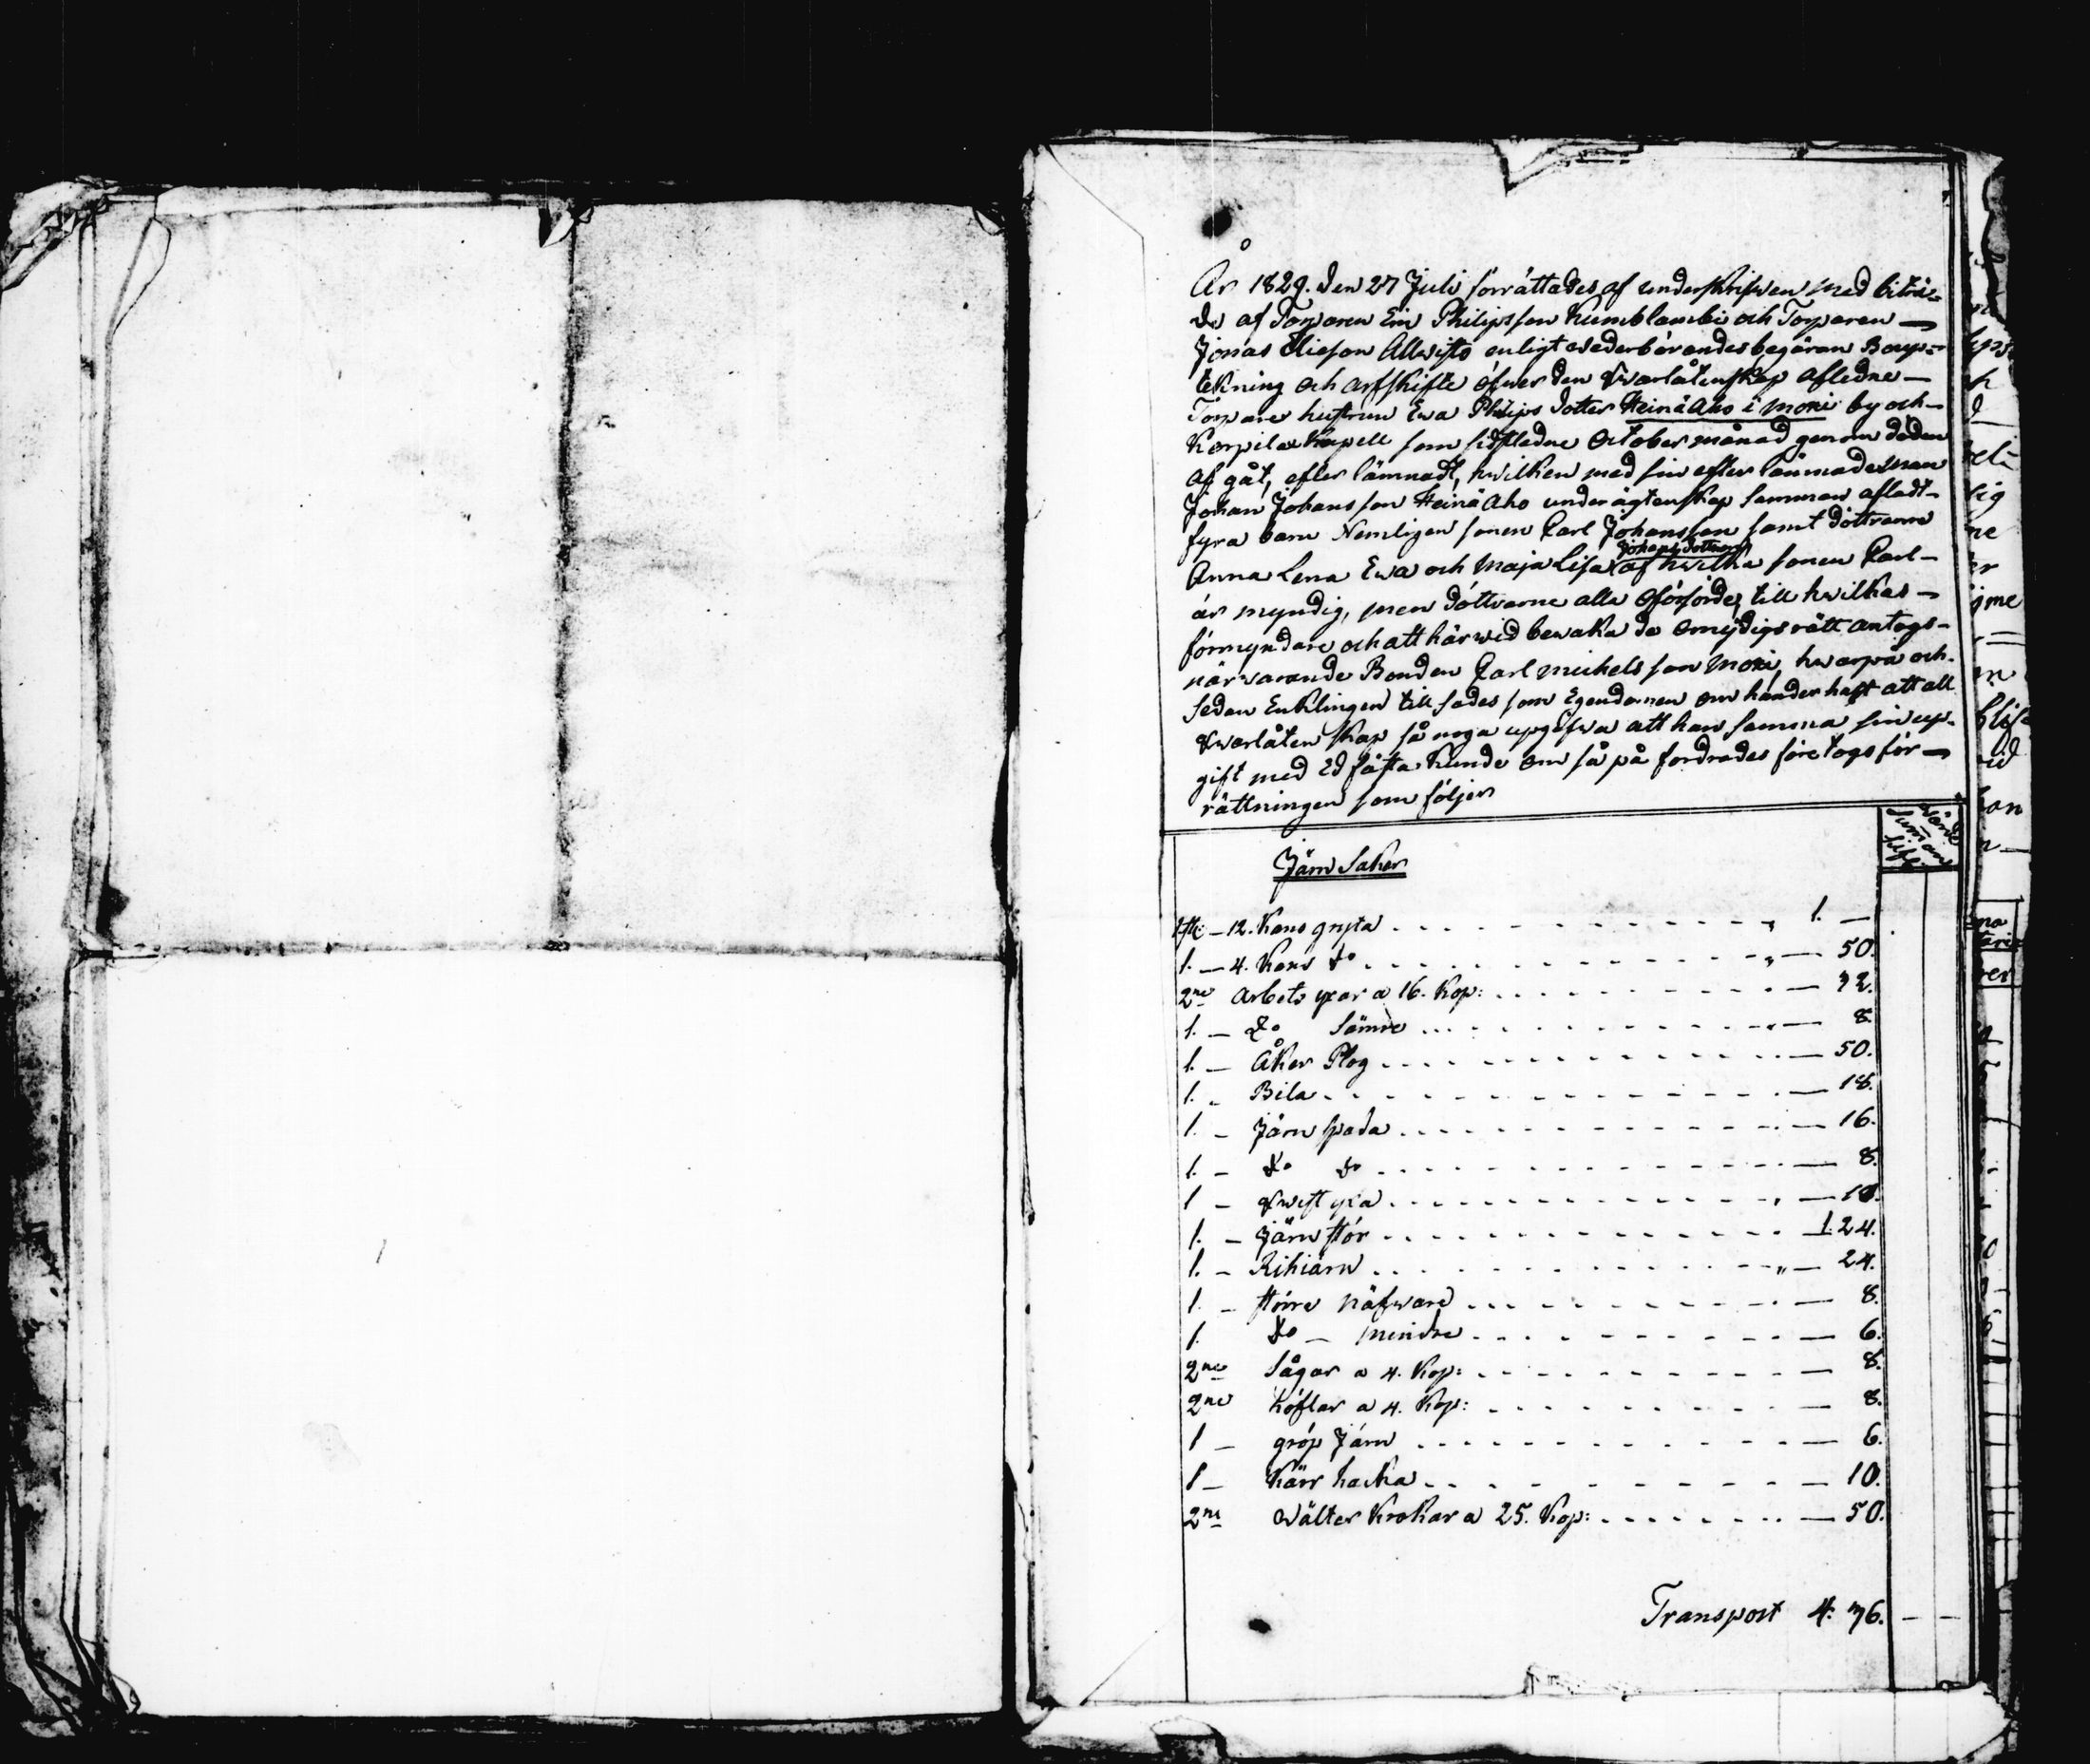 År 1829. den 27 Juli förrättades af underskrifven med biträ=
de af Torparen Eric Philipsson Kumblambi och Torparen —
Jonas Eliesson Allwisto enligt wederbörandes begäran Boup=
tekning och arfskifte öfwer den Qwarlåtenskap afledne —
Torpare hustrun Ewa Philips dotter Heinä Aho i Moxi by och —
Korpilax Kapell som sidstledne October månad genom döden
af gåt, efter lämnadt, hwilken med sin efter lämnade man
Johan Johansson Heinä Aho under ägtenskap samman afladt —
fyra barn Nemligen sonen Carl Johansson samt döttrarne
Johans döttrar
Anna Lena Ewa och Maja Lisa af hwilka sonen Carl —
är myndig, men döttrarne alla Oförsörde, till hwilkas —
förmyndare och att härwid bewaka de omyndigs rätt antogs —
närwarande Bonden Carl Michelsson Moxi, hwarpå och
sedan Enklingen till sades som Egendomen om händer haft att all
Qwarlåtenskap så noga upgifwa att han samma sin up-
gift med Ed fästa kunde om så på fordrades företogs för —
rättningen som följer
Wärde
Summan
Silfr.
Järn Saker
1 st: — 12. Kans gryta . . . . 1. —
1. — 4. Kans do . . . . — 50.
2ne Arbets yxor a 16. Kop: . . . . — 32.
1. — do Sämre . . . . — 8.
1. — Åker Plog . . . . — 50.
1. — Bila . . . . — 18.
1. — Järn spada . . . . — 16.
1. — do do . . . . — 8.
1 — Qwist yxa . . . . — 10.
1. — Järn stör . . . . 1. 24.
1. — Rihiärn . . . . — 24.
1. — större näfware . . . . — 8.
1. do — mindre . . . . — 6.
2ne Sågar a 4. Kop: . . . . — 8.
2ne höflar a 4. Kop: . . . . — 8.
1 — gröp Järn . . . . — 6.
1 — Kärr hacka . . . . — 10.
2ne Wälter Krokar a 25. Kop: . . . . — 50.
Transport 4. 76. — —